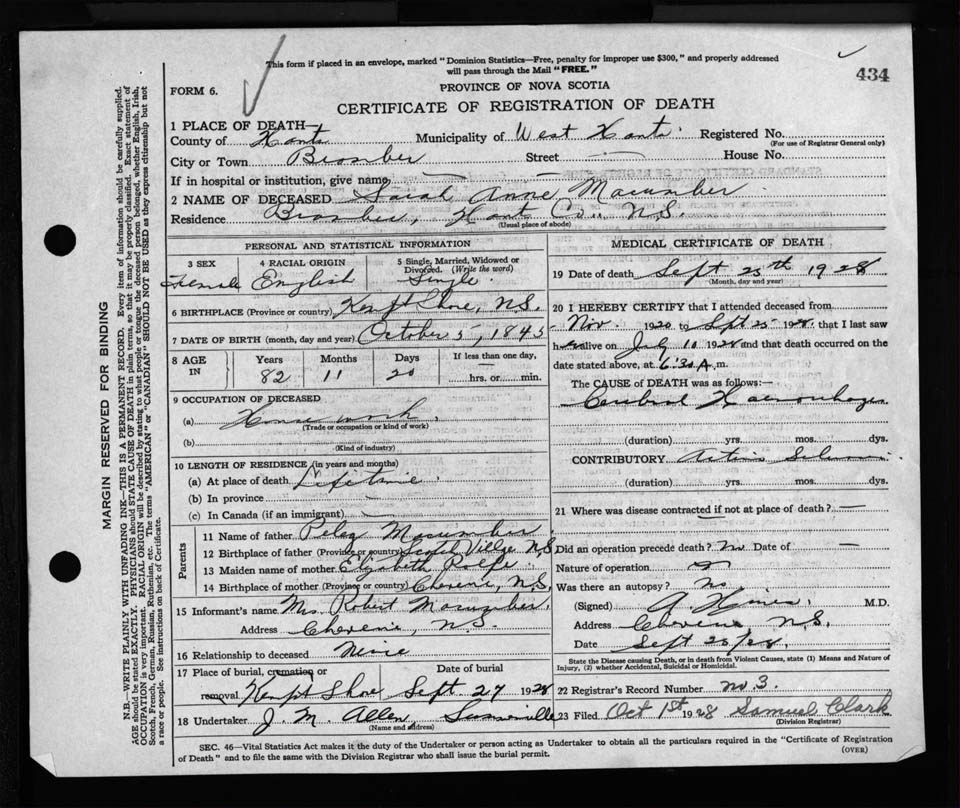 This form if placed in an envelope, marked "Dominion Statistics—Free, penalty for improper use $300," and properly addressed
will pass through the Mail "FREE."
434
FORM 6.
PROVINCE OF NOVA SCOTIA
CERTIFICATE OF REGISTRATION OF DEATH
1 PLACE OF DEATH—
County of Hants Municipality of West Hants. Registered No.
(For use of Registrar General only)
City or Town Street House No.
If in hospital or institution, give name
2 NAME OF DECEASED Sarah Anne Macumber
Residence Hants Co., N.S.
(Usual place of abode)
PERSONAL AND STATISTICAL INFORMATION
3 SEX 4 RACIAL ORIGIN 5 Single, Married, Widowed or
Divorced. (Write the word)
Female English Single.
6 BIRTHPLACE (Province or country) Kempt Shore, N.S.
7 DATE OF BIRTH (month, day and year) October 5, 1845
8 AGE IN Years Months Days If less than one day,
82 11 20 hrs. or min.
9 OCCUPATION OF DECEASED
(a) House work
(Trade or occupation or kind of work)
(b)
(Kind of industry)
10 LENGTH OF RESIDENCE (in years and months)
(a) At place of death Lifetime
(b) In province
(c) In Canada (if an immigrant) —
Parents
11 Name of father Peleg Macumber
12 Birthplace of father (Province or country) Scotch Village N.S.
13 Maiden name of mother Elizabeth Rolfe
14 Birthplace of mother (Province or country) Cheverie, N.S.
15 Informant's name Mrs. Robert Macumber.
Address Cheverie, N.S.
16 Relationship to deceased Niece
17 Place of burial, cremation or Date of burial
removal Kempt Shore Sept. 27 1928
18 Undertaker J. M. Allen, Summerville
(Name and address)
MEDICAL CERTIFICATE OF DEATH
19 Date of death Sept 25th 1928
(Month, day and year)
20 I HEREBY CERTIFY that I attended deceased from
Nov. 1920 to Sept 25 1928, that I last saw
her alive on July 10 1928 and that death occurred on
date stated above, at 6.30 A.m.
The CAUSE of DEATH was as follows:—
Cerebral Haemorhage
(duration) yrs. mos. dys.
CONTRIBUTORY
(duration) yrs. mos. dys.
21 Where was disease contracted if not at place of death? —
Did an operation precede death? No Date of
Nature of operation
Was there an autopsy? No
(Signed) M.D.
Address Cheverie N.S.
Date Sept
State the Disease causing Death, or in death from Violent Causes, state (1) Means and Nature of
Injury, (2) whether Accidental, Suicidal or Homicidal.
22 Registrar's Record Number No 3.
23 Filed Oct 1st 1928 Samuel Clark
(Division Registrar)
SEC. 46—Vital Statistics Act makes it the duty of the Undertaker or person acting as Undertaker to obtain all the particulars required in the "Certificate of Registration
of Death" and to file the same with the Division Registrar who shall issue the burial permit. (OVER)
MARGIN RESERVED FOR BINDING
N.B.—WRITE PLAINLY WITH UNFADING INK—THIS IS A PERMANENT RECORD. Every item of information should be carefully supplied.
AGE should be stated EXACTLY. PHYSICIANS should STATE CAUSE OF DEATH in plain terms, so that it may be properly classified. Exact statement of
OCCUPATION is very important. RACIAL ORIGIN will be described by stating to what people or tongue the deceased person belonged, whether English, Irish,
Scotch, French, German, Russian, Ruthenian, etc. The terms "AMERICAN" or "CANADIAN" SHOULD NOT BE USED as they express citizenship but not
a race or people. See instructions on back of Certificate.